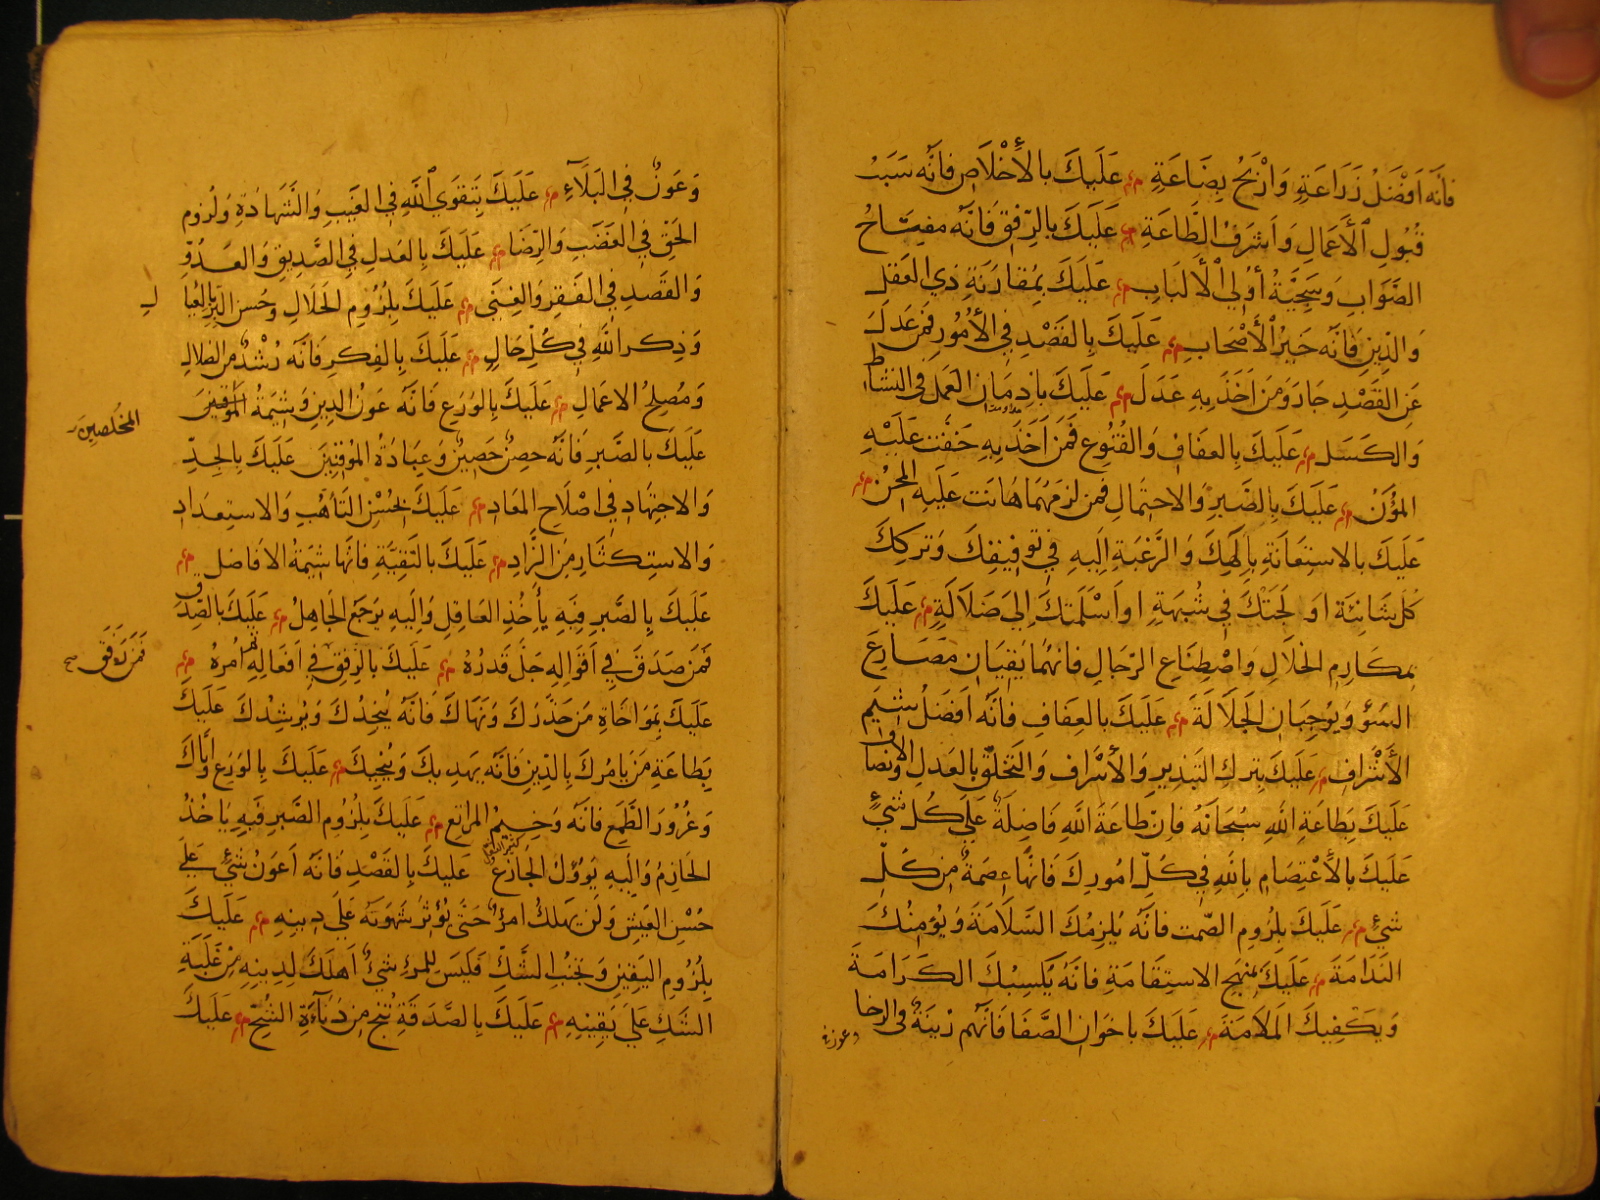 فانه اَفْضَلُ زَرَاعَةٍ وَاَرْبَحُ بِضَاعَةٍ عَلَيكَ بالأخْلَاصِ فَانَّه سَبَبُ
قُبُولِ الأَعمَالِ وَاَشرَفُ الطَّاعَةِ عَلَيكَ بالرِّفقِ فَانَّهُ مفتِاحُ
الصَّوَابِ وَسَجِيَّةُ أوُلي الْأَلبَابِ عَلَيكَ بِمُقارَنَةِ ذي العَقلِ
وَالدّينِ فَانَّه خَيرُ الأَصْحَابِ عَلَيكَ بِالقَصْدِ فِي الأمُورِ فَمَن عَدَلَ
عَنِ القَصْدِ جَارَ وَمَن اَخَذَ بِهِ عَدَلَ عَلَيكَ بادِمَانِ العَمَل في النشاط
وَالكَسَل عَلَيكَ بِالعَفافِ وَالقُنُوعِ فَمَن اَخَذَ بِهِ خَفَّت عَلَيْهِ
المؤُنَ عَلَيكَ بِالصَّبرِ وَالاحتِمالِ فَمَن لزمَهُمَا هَانَت عَلَيهِ المِحَنُ
عَلَيكَ بالاستِعَانَةِ بِالَهِكَ وَالرَّغبَةِ اِلَيهِ فِي توفيقِكَ وَتركِكَ
كُلّ شَائِنَة اَو لَجَتكَ فِي شُبهَةٍ او اَسْلَمَتكَ اِلىَ ضَلَالَةٍ عَلَيكَ
بمكَارِمِ الخلَالِ وَاصْطِنَاعِ الرّجَالِ فانهُمَا يَقِيَانِ مَصَارِعَ
السُّوْءِ وَيُوجِبَانِ الجَلَالَةَ عَلَيكَ بالعِفَافِ فَانَّه اَفضَلُ شِيَم
الأَشْرَافِ عَلَيكَ بِتركِ التَّبذِيرِ وَالأسْرَاف وَالتَخَلّق بِالعَدلِ والانصَاف
عَلَيكَ بِطَاعَةِ اللهِ سُبحَانَهُ فَاِنّ طَاعَةَ اللهِ فَاضِلَةٌ عَلى كُل شَيْءٍ
عَلَيكَ بالأعتِصَامِ بِاللهِ فِي كُلِّ امُورِكَ فَانّهَا عِصْمَةٌ مِن كُلِّ
شَيْءٍ عَلَيكَ بِلزُومِ الصّمت فَانّهُ يُلزِمُكَ السَّلَامَةَ وَيُؤمِنُكَ
النَدَامَةَ عَلَيكَ بمنهَج الاستِقَامَةِ فَانّهُ يُكسِبُكَ الكَرَامَةَ
وَيَكفِيكَ المَلَامَةَ عَلَيكَ باخوَانِ الصَّفَا فَانّهُم زينَةٌ في الرخا
وعون
وَعَونٌ فِي البَلَاءِ عَلَيكَ بِتَقوَى اللهِ فِي الغَيبِ وَالشَّهَادَةِ وَلُزوم
الحَقّ فِي الغَضَبِ وَالرِّضَا عَلَيكَ بِالعَدلِ فِي الصَّدِيقِ وَالعَدُوّ
وَالقَصْدِ فِي الفَقرِ وَالغِنَى عَلَيكَ بِلُزُومِ الحَلَالِ وَحُسنِ البِّرِ بِالعِيا
ل
وَذِكرِ اللهِ فِي كُلِّ حَالٍ عَلَيكَ بِالفِكرِ فَانَّه رُشْدٌ مِن الضلالِ
وَمُصلِحُ الاعمَالِ عَلَيكَ بِالوَرَعِ فَانَّهُ عَونُ الدِينِ وَشِيمَةُ الموقنينَ
المخُلصِينَ
عَلَيكَ بالصَّبرِ فَانَّهُ حِصنٌ حَصِينٌ وَعِبَادَةُ المُوقِنِينَ عَلَيكَ بِالجِدِّ
وَالاجتِهَادِ فِي اصْلَاحِ المَعَادِ عَلَيكَ بحُسْنِ التَأهُّبِ وَالاستِعدَادِ
وَالاستِكثَارِ مِنَ الزَّادِ عَلَيكَ بالتَقِيَّةِ فَانَّهَا شِيَمةُ الافَاضل
عَلَيكَ بِالصَّبرِ فَبِهِ يأَخُذ العَاقِل وَاِلَيهِ يَرجَع الجَاهِلُ عَلَيكَ بالصِّدق
فَمَن صَدَقَ فِي اَقوَالِهِ جَلَّ قَدرُهُ عَلَيكَ بالرِفقِ فِي اَفعَالِهِ تم امرهُ
فَمَن رَفَقَ صح
عَلَيكَ بِمَوَاخَاةِ مَن حَذّرَكَ وَنَهَاكَ فَانَّهُ يُنجِدُكَ وَيُرشِدُكَ عَلَيكَ
بِطَاعَةِ مَن يامُركَ بِالدّينِ فَانَّه يَهدِيكَ وَيُنجِيكَ عَلَيكَ بالوَرَعِ وَايَّاكَ
وَغُرُورَ الطَّمَع فَانَّهُ وَخِيمُ المرَاتع عَلَيكَ بِلُزُوم الصَّبرِ فَبِهِ يَاخُذُ
الحَازِمُ وَاِلَيهِ يَؤوُلُ الجَازِعُ عَلَيكَ بِالقَصْدِ فَانَّهُ اَعوَنُ شَيْءٍ عَلَى
حُسْنِ العَيشِ وَلَن يَهلكُ امرُؤٌ حَتَّى يُؤثَرُ شَهوَتَهُ عَلَى دِينِهِ عَلَيكَ
بِلُزُومِ اليَقِينِ وَتجنُبِ الشَّكِّ فَلَيسَ لِلمرءِ شَيْءٌ اَهلَكَ لِدِينِهِ مِنْ غَلَبَةِ
الشَكِ عَلَى يَقِينِهِ عَلَيكَ بِالصَّدَقَةِ تُنجِ مِن دَنَاءَةِ الشُّحِّ عَلَيكَ